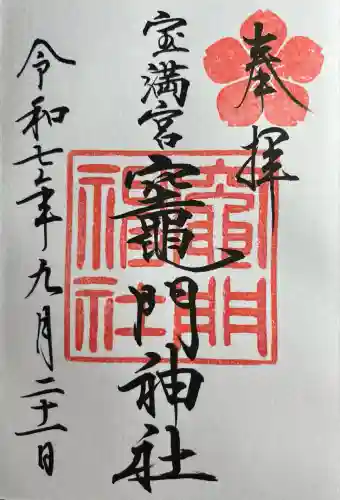 奉拝
宝満宮
竈門神社
令和七年九月二十一日
竈門神社